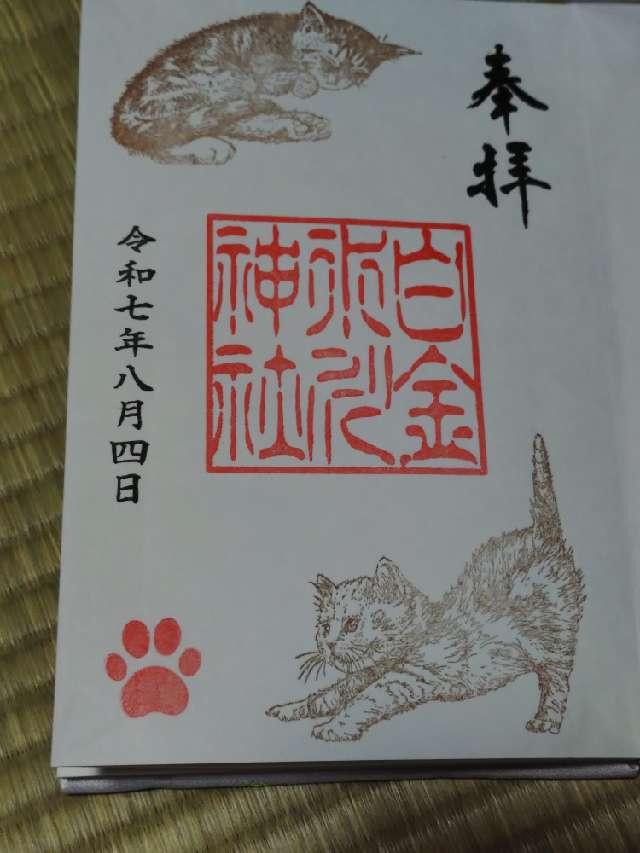 奉拝
白金
氷川
神社
令和七年八月四日